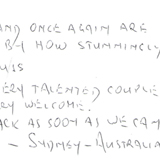 AND ONCE AGAIN ARE
BY HOW STUNNINGLY
US
VERY TALENTED COUPLE
RY WELCOME.
ACK AS SOON AS WE CAN
- SYDNEY - AUSTRALIA